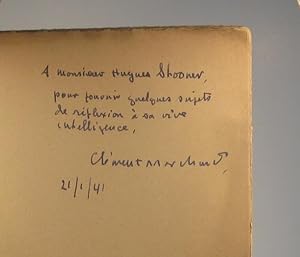 A monsieur Hugues Shooner,
pour fournir quelques sujets
de réflexion à sa vive
intelligence,
Clément Marchand,
21/1/41